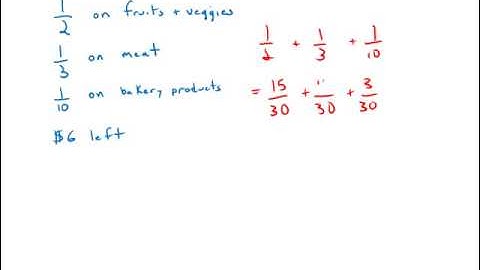 1/2 on fruits + veggies
1/3 on meat
1/10 on bakery products
$6 left
1/2 + 1/3 + 1/10
= 15/30 + /30 + 3/30